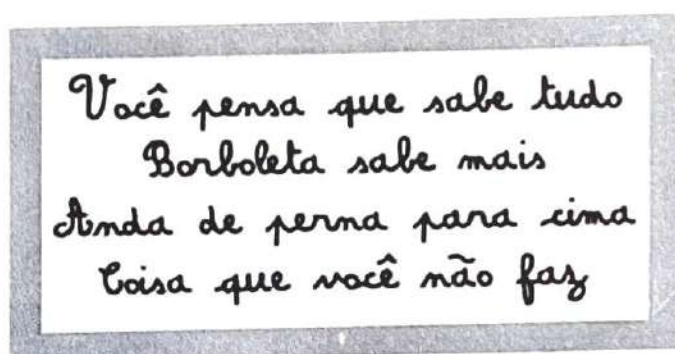 Você pensa que sabe tudo
Borboleta sabe mais
Anda de perna para cima
Coisa que você não faz